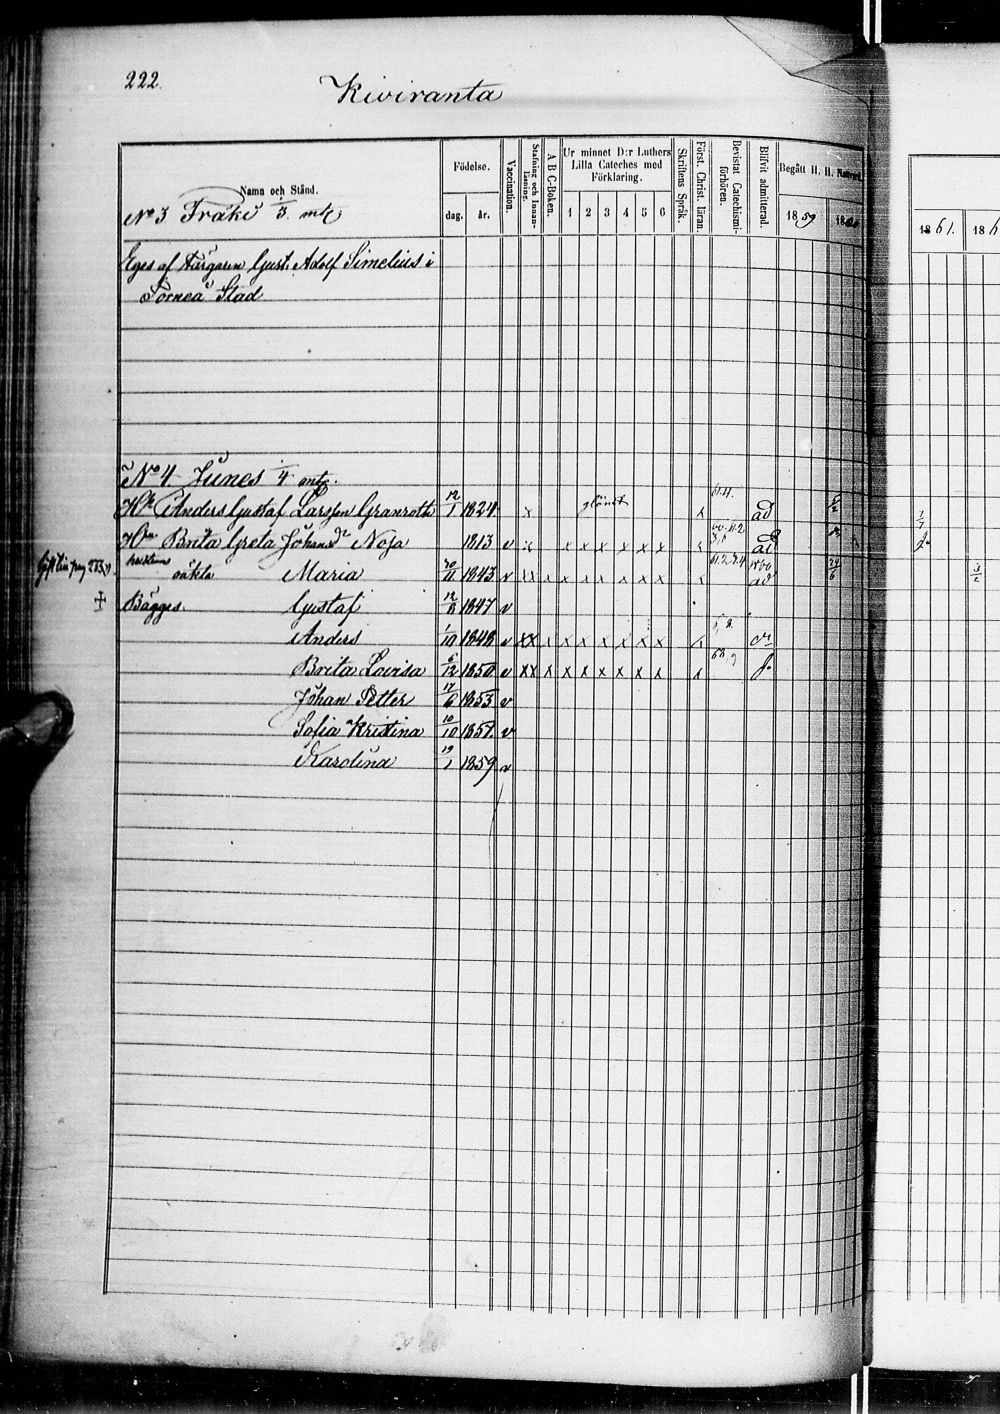 222.
Kiviranta
Namn och Stånd.
Födelse.
dag.
år.
Vaccination.
Stafning och Innan-läsning.
A B C-Boken.
Ur minnet D:r Luthers
Lilla Cateches med
Förklaring.
1 2 3 4 5 6
Skriftens Språk.
Först. Christ. läran.
Bevistat Catechismi-förhören.
Blifvit admitterad.
Begått H. H. Nattvard.
1859
1860
1861.
186
No 3 Fräki 1/3 mtl
Eges af Färgaren Gust. Adolf Simelius i
Torneå Stad
No 4 Junes 1/4 mtl.
Anders Gustaf Larsson Granroth 12/1 1824 x glömt x 61.4. ad
Brita Greta Johansd:r Noja 1813 v x x x x x x x
oäkta Maria 20/11 1843 v
Bägges. Gustaf 12/8 1847 v
Anders 1/10 1848 v xx x x x x x x x
Brita Lovisa 6/12 1850 v xx x x x x x x x
Johan Petter 17/6 1853 v
Sofia Kristina 10/10 1857. v
Karolina 19/1 1859 v